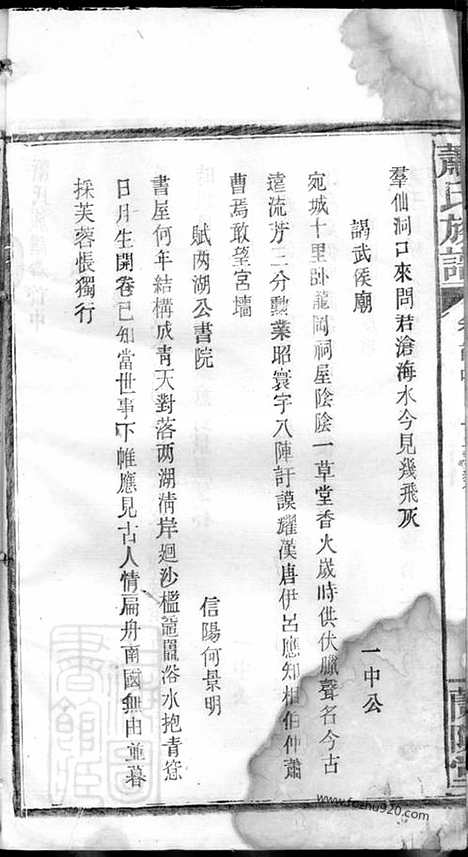 蕭氏族譜
羣仙洞口來問君滄海水今見幾飛灰
謁武侯廟
一中公
宛城十里臥龍岡祠屋陰陰一草堂香火歲時供伏臘聲名今古
遠流芳三分勳業昭寰宇八陣訏謨耀漢唐伊呂應知相伯仲蕭
曹焉敢望宮墻
賦两湖公書院
信陽何景明
書屋何年結構成青天對落两湖清岸迴沙檻黿鼉浴水抱青
日月生開卷已知當世事下帷應見古人情扁舟南國無由並暮
採芙蓉悵獨行
www.fozhu920.com